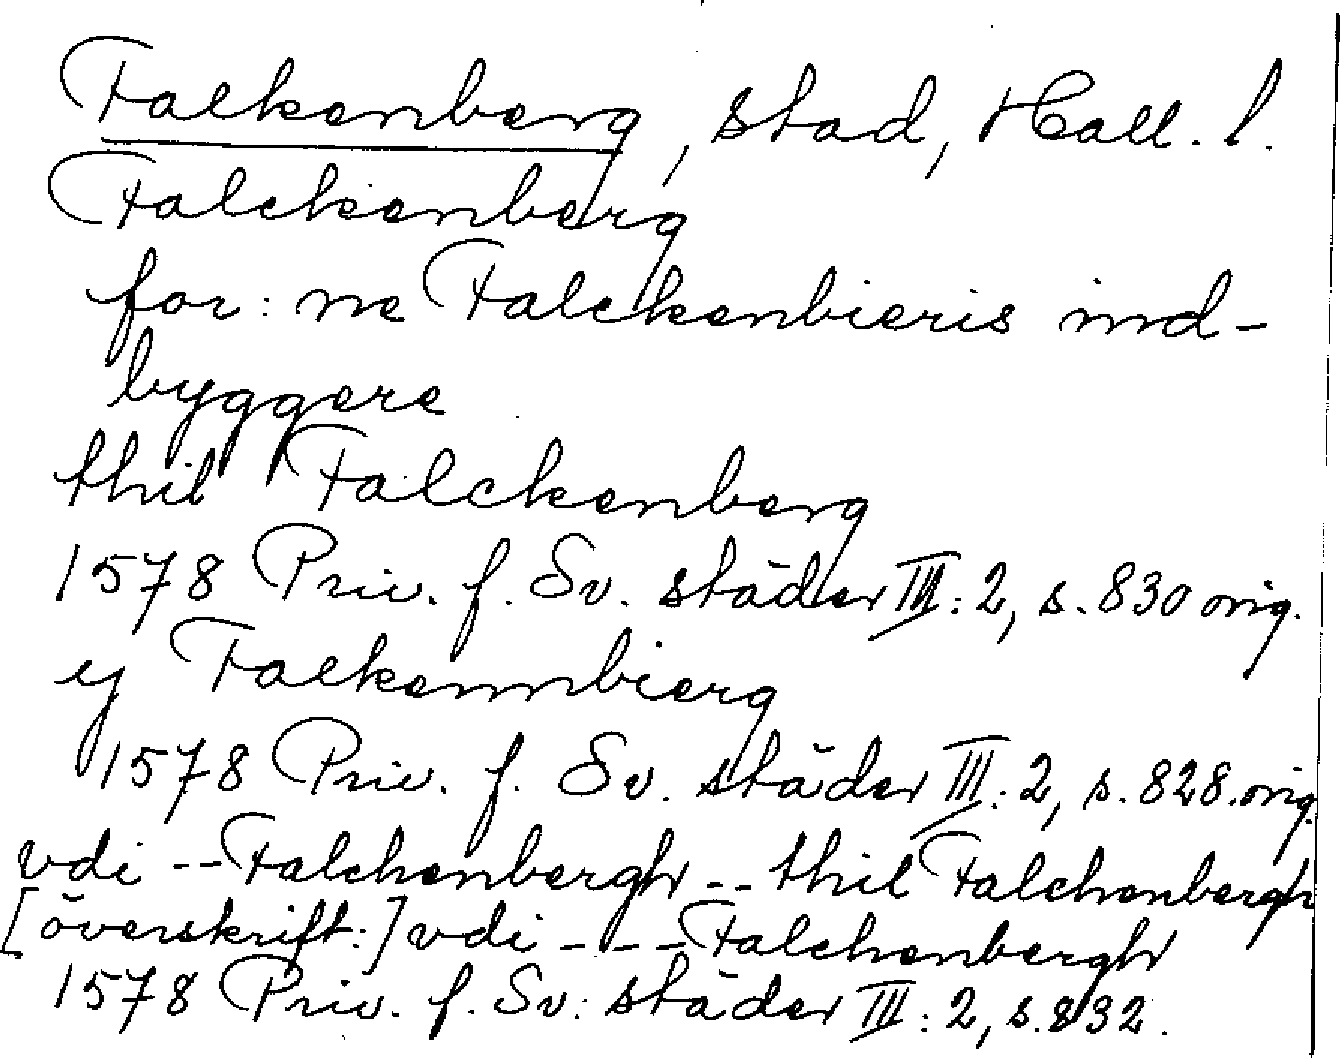 Falkenberg, stad, Hall. l.
Falckenberg
for: ne Falckenbieris ind-
byggere
thil Falckenberg
1578 Priv. f. Sv. städer III:2, s. 830 orig.
ij Falkennbierg
1578 Priv. f. Sv. städer III:2, s. 828. orig.
vdi -- Falchenbergh -- thil Falchenbergh
[överskrift:] vdi --- Falchenbergh
1578 Priv. f. Sv. städer III:2, s. 832.